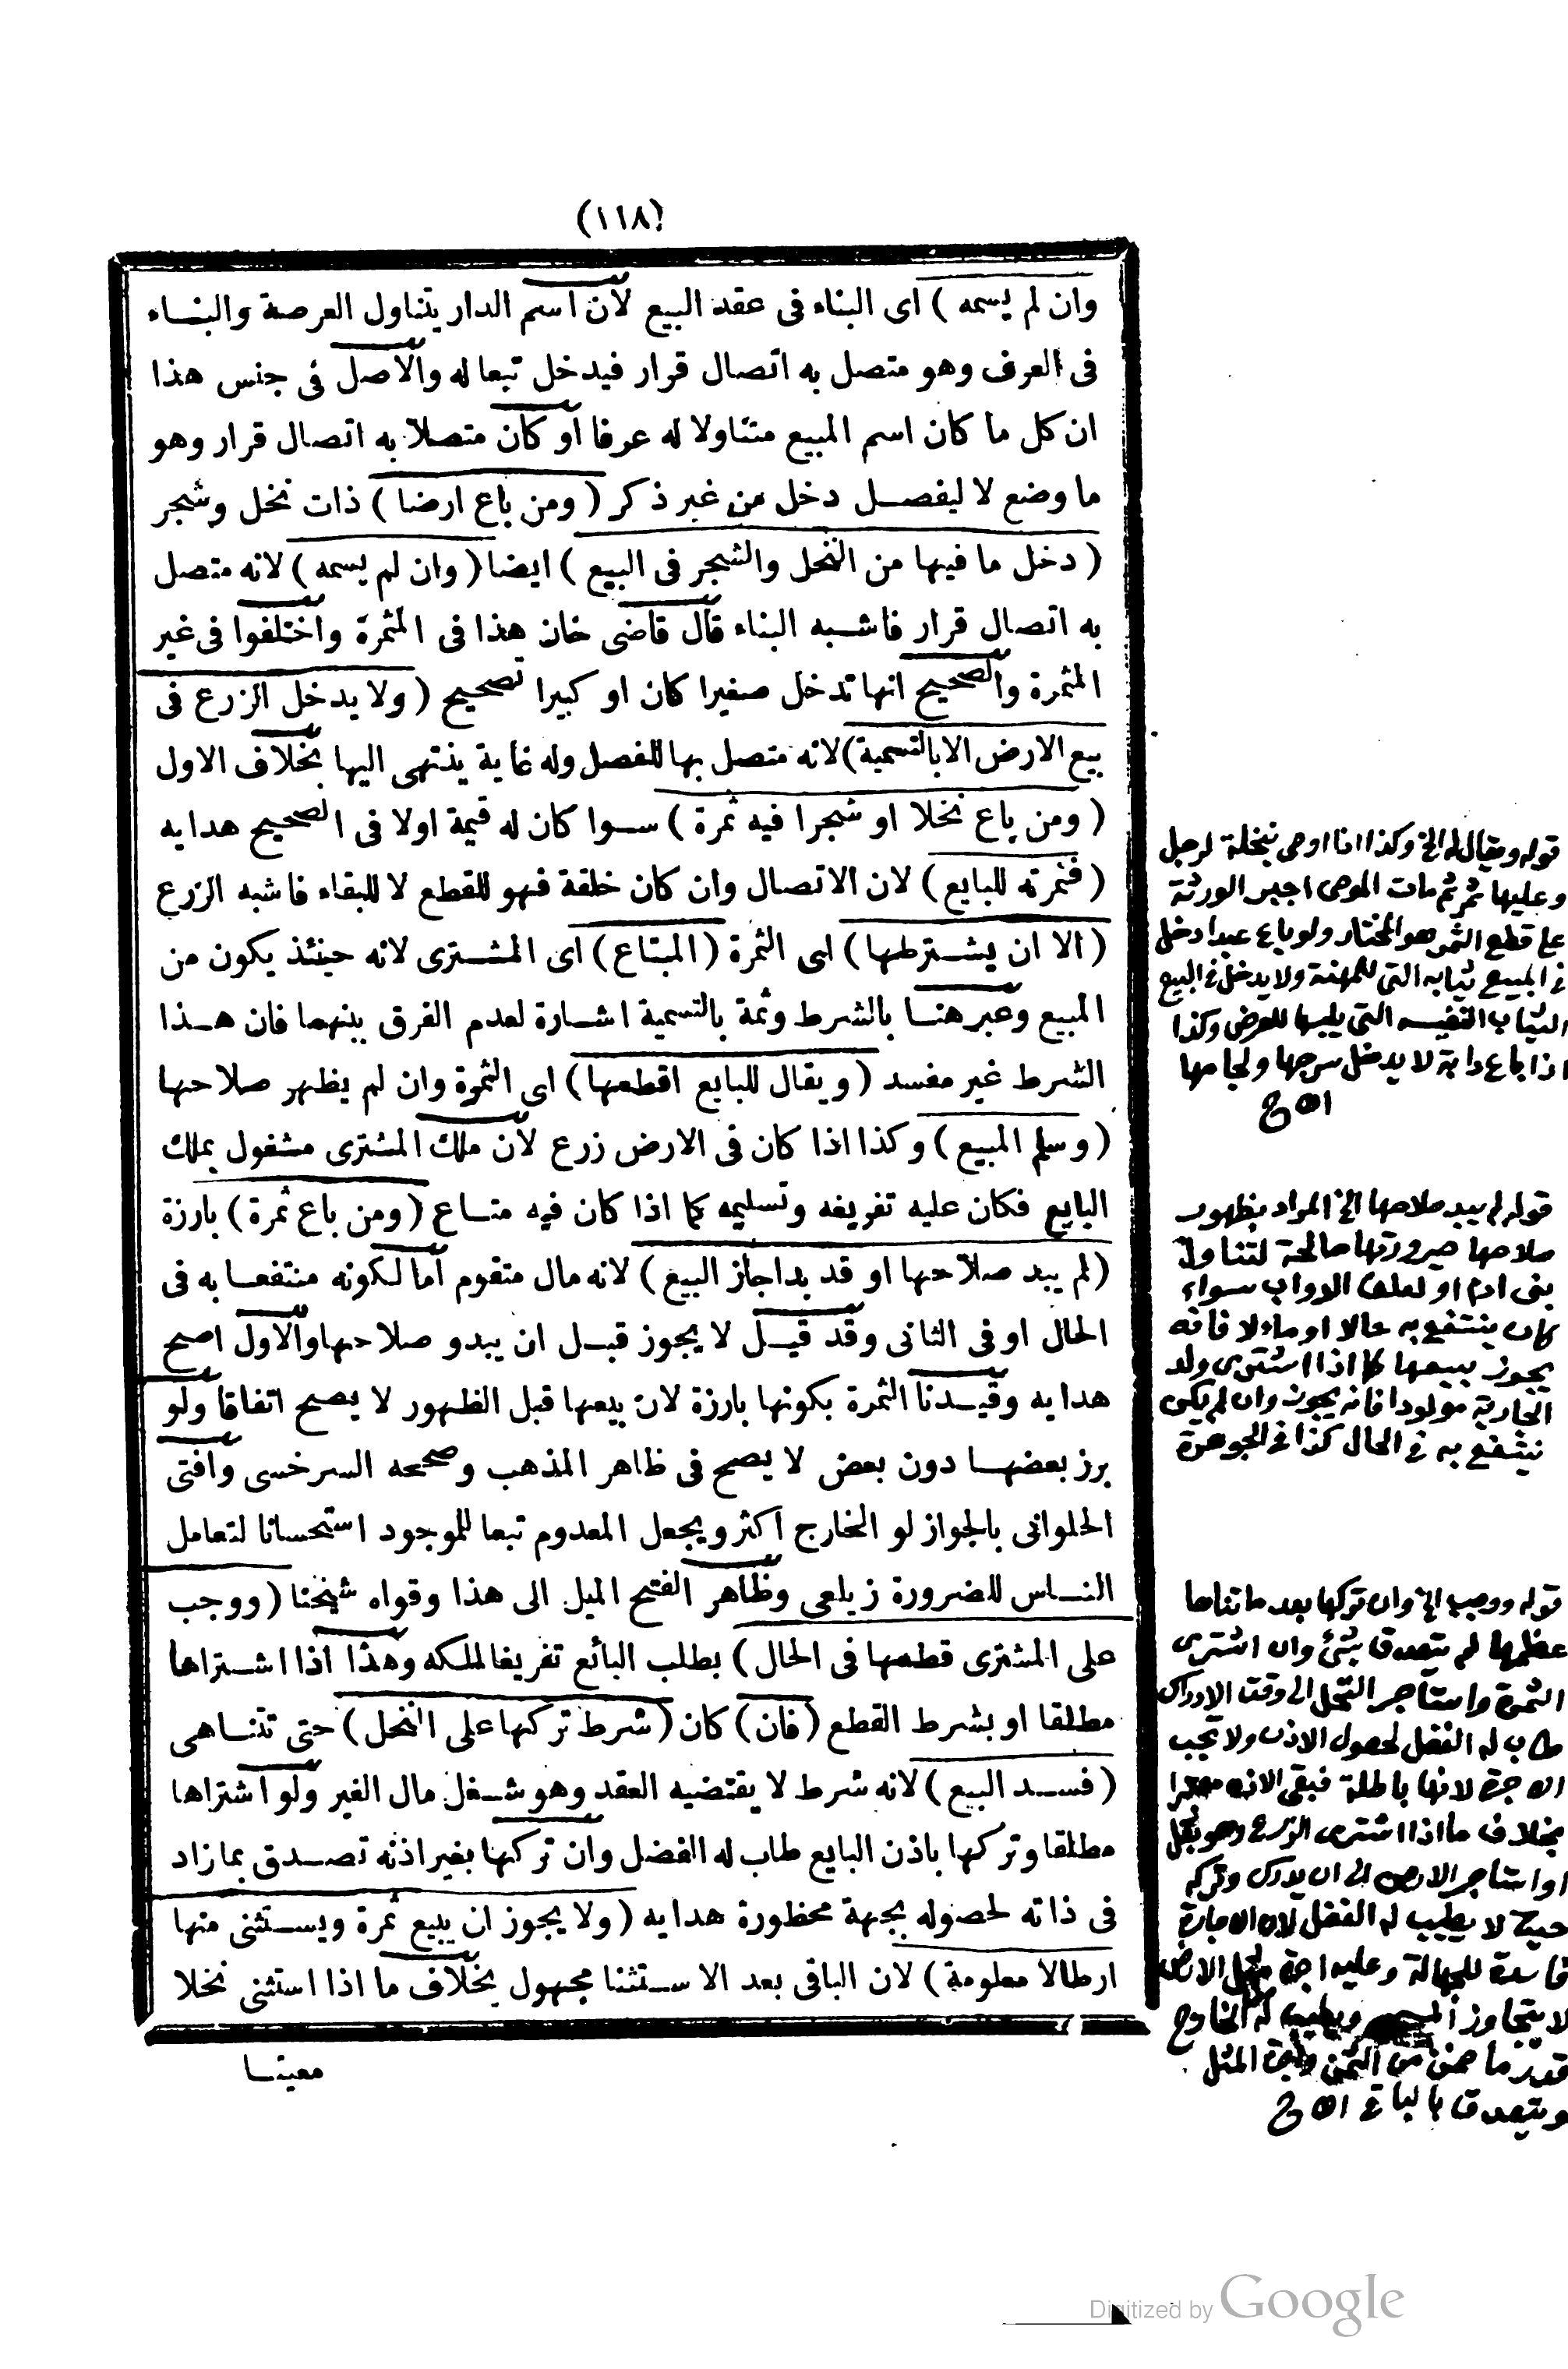 (١١٨)
وان لم يسمه ) اى البناء فى عقد البيع لان اسم الدار يتناول العرصة والبناء
فى العرف وهو متصل به اتصال قرار فيدخل تبعا له والاصل فى جنس هذا
ان كل ما كان اسم المبيع متناولا له عرفا او كان متصلا به اتصال قرار وهو
ما وضع لا ليفصل دخل من غير ذكر ( ومن باع ارضا ) ذات نخل وشجر
( دخل ما فيها من النخل والشجر فى البيع ) ايضا ( وان لم يسمه ) لانه متصل
به اتصال قرار فاشبه البناء قال قاضى خان هذا فى المثمرة واختلفوا فى غير
المثمرة والصحيح انها تدخل صغيرا كان او كبيرا تصحيح ( ولا يدخل الزرع فى
بيع الارض الا بالتسمية ) لانه متصل بها للفصل وله غاية ينتهى اليها بخلاف الاول
( ومن باع نخلا او شجرا فيه ثمرة ) سوا كان له قيمة اولا فى الصحيح هدايه
( فثمرته للبايع ) لان الاتصال وان كان خلقة فهو للقطع لا للبقاء فاشبه الزرع
( الا ان يشترطها ) اى الثمرة ( المبتاع ) اى المشترى لانه حينئذ يكون من
المبيع وعبر هنا بالشرط وثمة بالتسمية اشارة لعدم الفرق بينهما فان هذا
الشرط غير مفسد ( ويقال للبايع اقطعها ) اى الثمرة وان لم يظهر صلاحها
( وسلم المبيع ) وكذا اذا كان فى الارض زرع لان ملك المشترى مشغول بملك
البايع فكان عليه تفريغه وتسليمه كما اذا كان فيه متاع ( ومن باع ثمرة ) بارزة
( لم يبد صلاحها او قد بدا جاز البيع ) لانه مال متقوم اما لكونه منتفعا به فى
الحال او فى الثانى وقد قيل لا يجوز قبل ان يبدو صلاحها والاول اصح
هدايه وقيدنا الثمرة بكونها بارزة لان بيعها قبل الظهور لا يصح اتفاقا ولو
برز بعضها دون بعض لا يصح فى ظاهر المذهب وصححه السرخسى وافتى
الحلوانى بالجواز لو الخارج اكثر ويجعل المعدوم تبعا للموجود استحسانا لتعامل
الناس للضرورة زيلعى وظاهر الفتح الميل الى هذا وقواه شيخنا ( ووجب
على المشترى قطعها فى الحال ) بطلب البائع تفريغا لملكه وهذا اذا اشتراها
مطلقا او بشرط القطع ( فان ) كان ( شرط تركها على النخل ) حتى تتناهى
( فسد البيع ) لانه شرط لا يقتضيه العقد وهو شغل مال الغير ولو اشتراها
مطلقا وتركها باذن البايع طاب له الفضل وان تركها بغير اذنه تصدق بما زاد
فى ذاته لحصوله بجهة محظورة هدايه ( ولا يجوز ان يبيع ثمرة ويستثنى منها
ارطالا معلومة ) لان الباقى بعد الاستثنا مجهول بخلاف ما اذا استثنى نخلا
معينا
قوله ويقال له الخ وكذا اذا اوصى بنخلة لرجل
وعليها ثمر ثم مات الموصى اجبر الورثة
على قطع الثمر هو المختار ولو باع عبدا دخل
فى المبيع ثيابه التى للمهنة ولا يدخل فى البيع
الثياب النفيسه التى يلبسها للعرض وكذا
اذا باع دابة لا يدخل سرجها ولجامها
اه ج
قوله لم يبد صلاحها الخ المراد بظهور
صلاحها صيرورتها صالحة لتناول
بنى ادم او لعلف الدواب سواء
كان ينتفع به حالا او مئالا فانه
يجوز بيعها كما اذا اشترى ولد
الجارية مولودا فانه يجوز وان لم يكن
ينتفع به فى الحال كذا فى الجوهرة
قوله ووجب الخ وان تركها بعد ما تناها
عظمها لم يتصدق بشئ وان اشترى
الثمرة واستأجر النخل الى وقت الادراك
طاب له الفضل لحصول الاذن ولا تجب
الاجرة لانها باطلة فبقى الاذن معتبرا
بخلاف ما اذا اشترى الزرع وهو بقل
او استاجر الارض الى ان يدرك وتركه
حيث لا يطيب له الفضل لان الاجارة
فاسدة للجهالة وعليه اجرة مثل الارض
لا يتجاوز ويطيب له الخارج
قدر ما ضمن من الثمن واجرة المثل
ويتصدق بالباقى اه ج
Digitized by Google